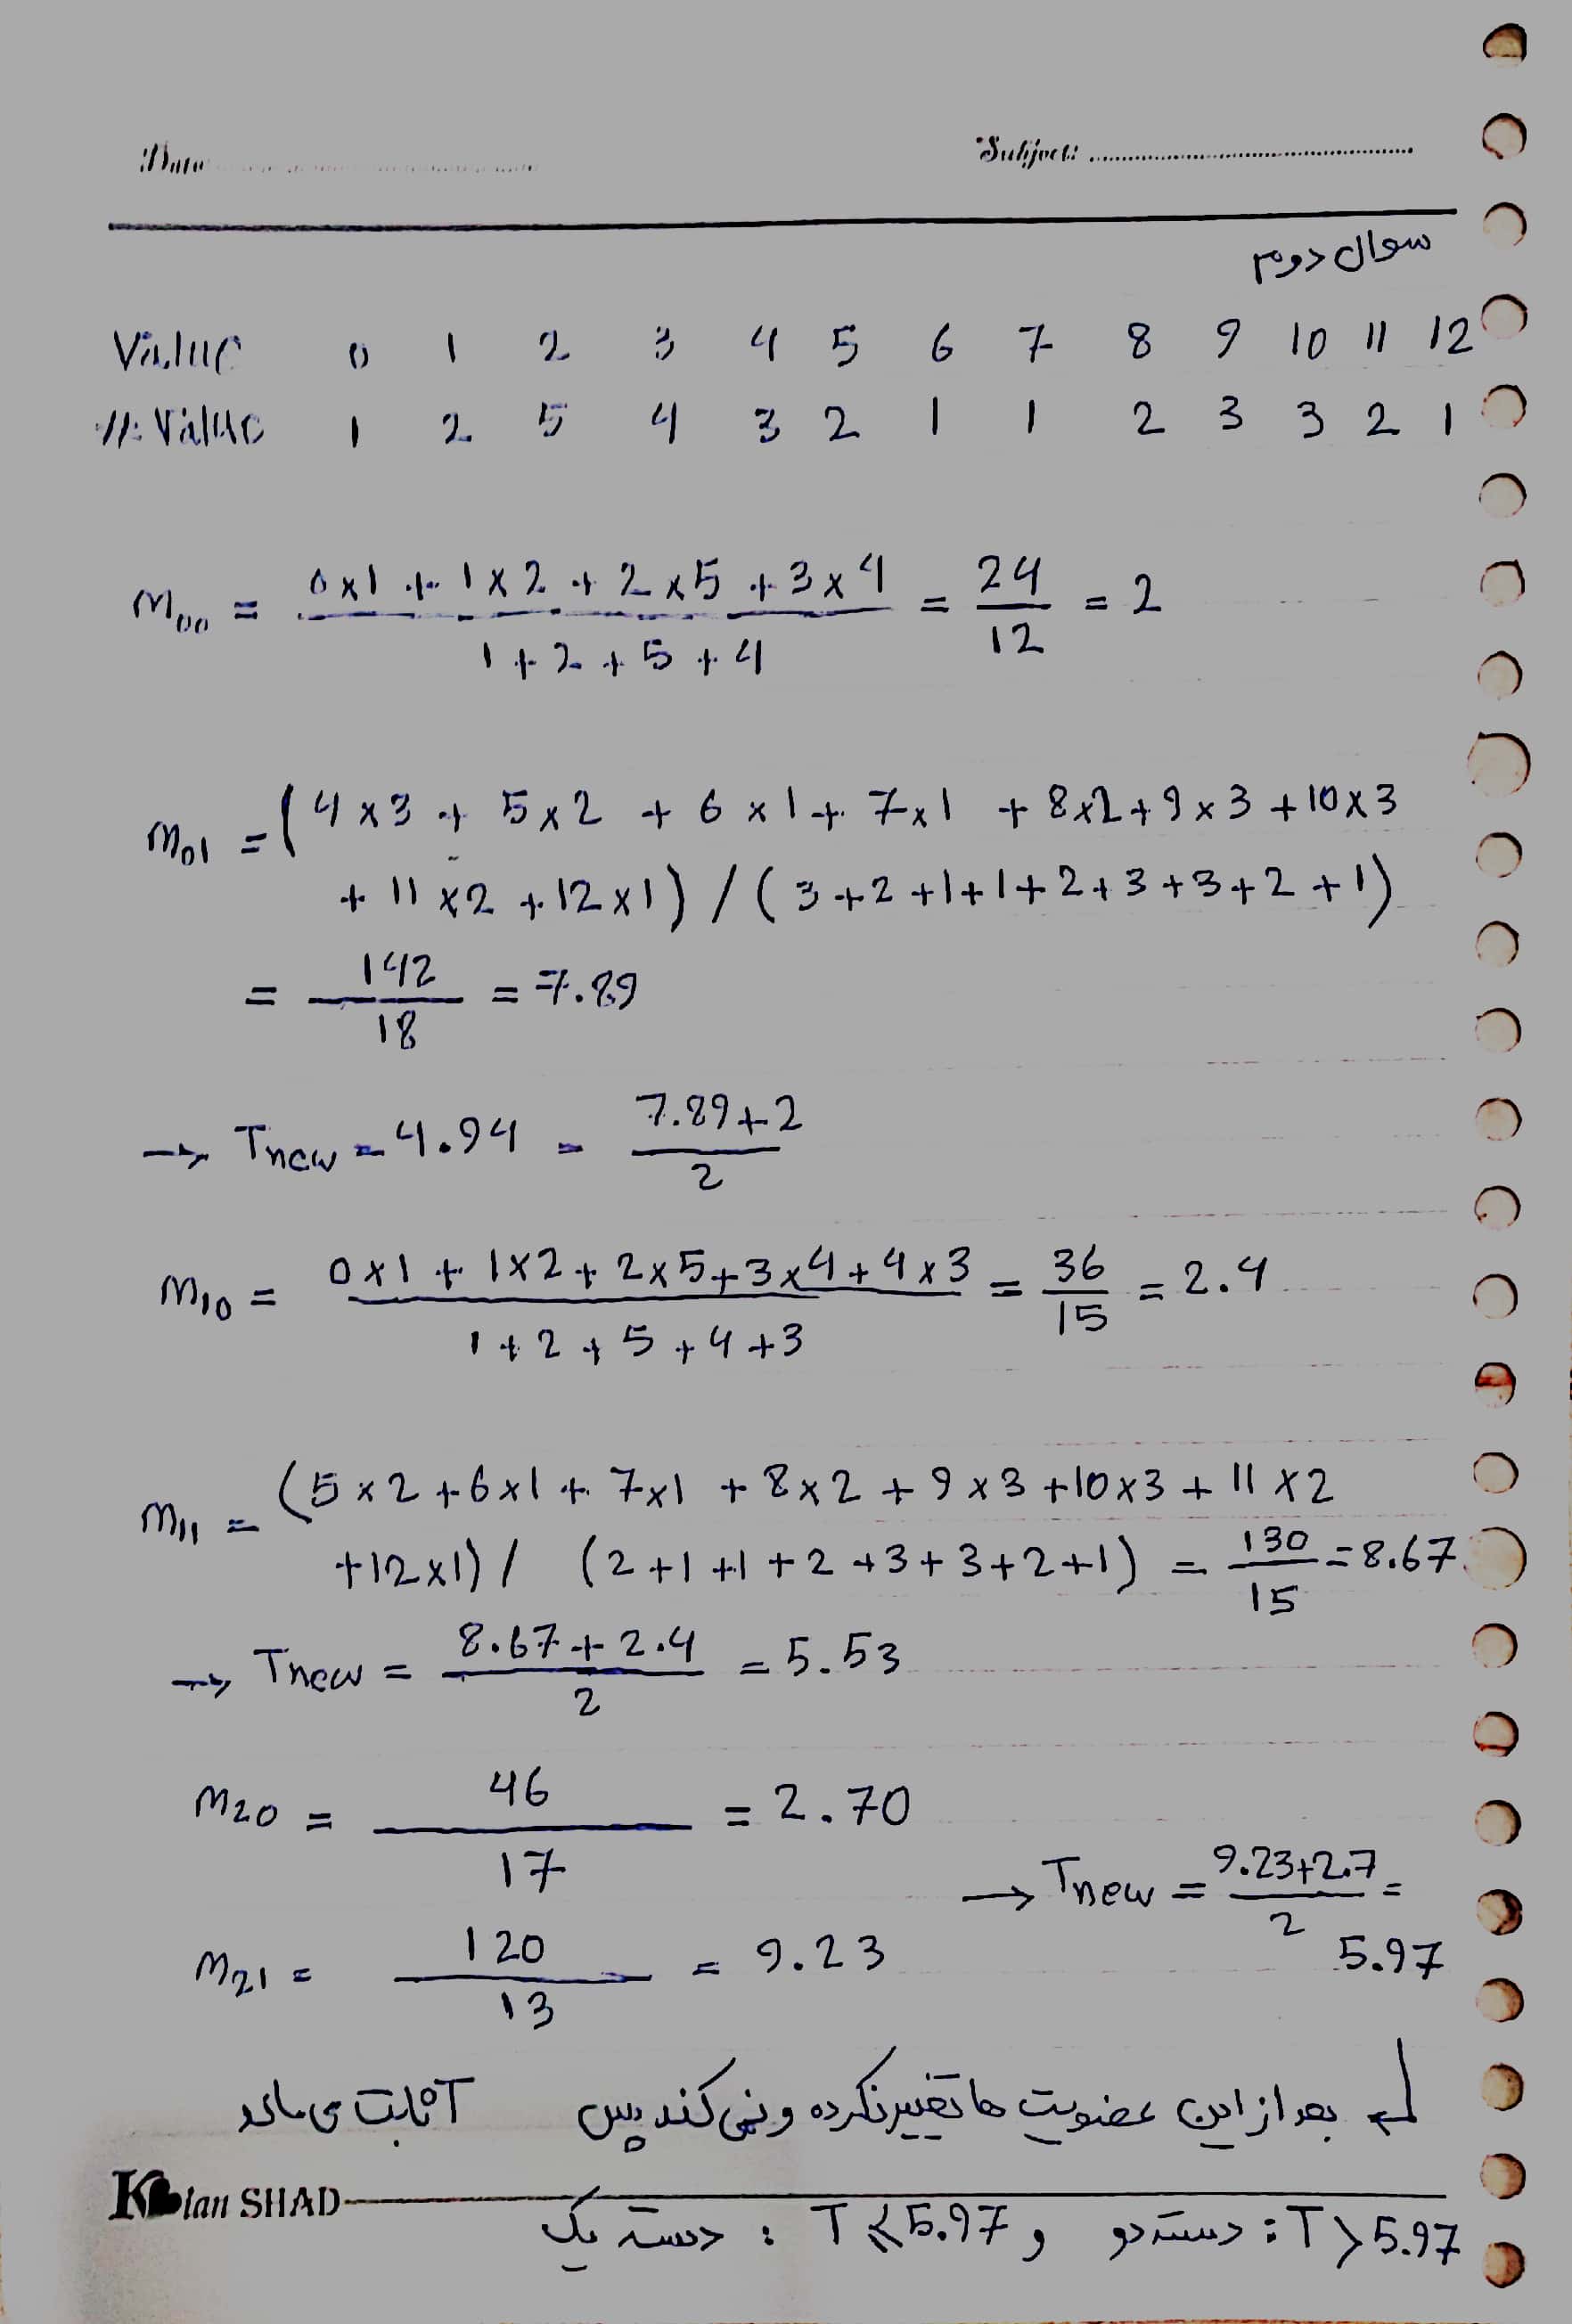 Date
Subject:
سوال دوم
Value 0 1 2 3 4 5 6 7 8 9 10 11 12
#Value 1 2 5 4 3 2 1 1 2 3 3 2 1
m₀₀ = (0×1 + 1×2 + 2×5 + 3×4) / (1+2+5+4) = 24/12 = 2
m₀₁ = (4×3 + 5×2 + 6×1 + 7×1 + 8×2 + 9×3 + 10×3
+ 11×2 + 12×1) / (3+2+1+1+2+3+3+2+1)
= 142/18 = 7.89
→ Tnew = 4.94 = (7.89+2)/2
m₁₀ = (0×1 + 1×2 + 2×5 + 3×4 + 4×3) / (1+2+5+4+3) = 36/15 = 2.4
m₁₁ = (5×2 + 6×1 + 7×1 + 8×2 + 9×3 + 10×3 + 11×2
+12×1) / (2+1+1+2+3+3+2+1) = 130/15 = 8.67
→ Tnew = (8.67+2.4)/2 = 5.53
m₂₀ = 46/17 = 2.70
m₂₁ = 120/13 = 9.23
→ Tnew = (9.23+2.7)/2 = 5.97
بعد از این عضویت ها تغییر نکرده و نمی کند پس T ثابت می ماند
Kolan SHAD
T > 5.97 : دسته دو و T ⩽ 5.97 : دسته یک